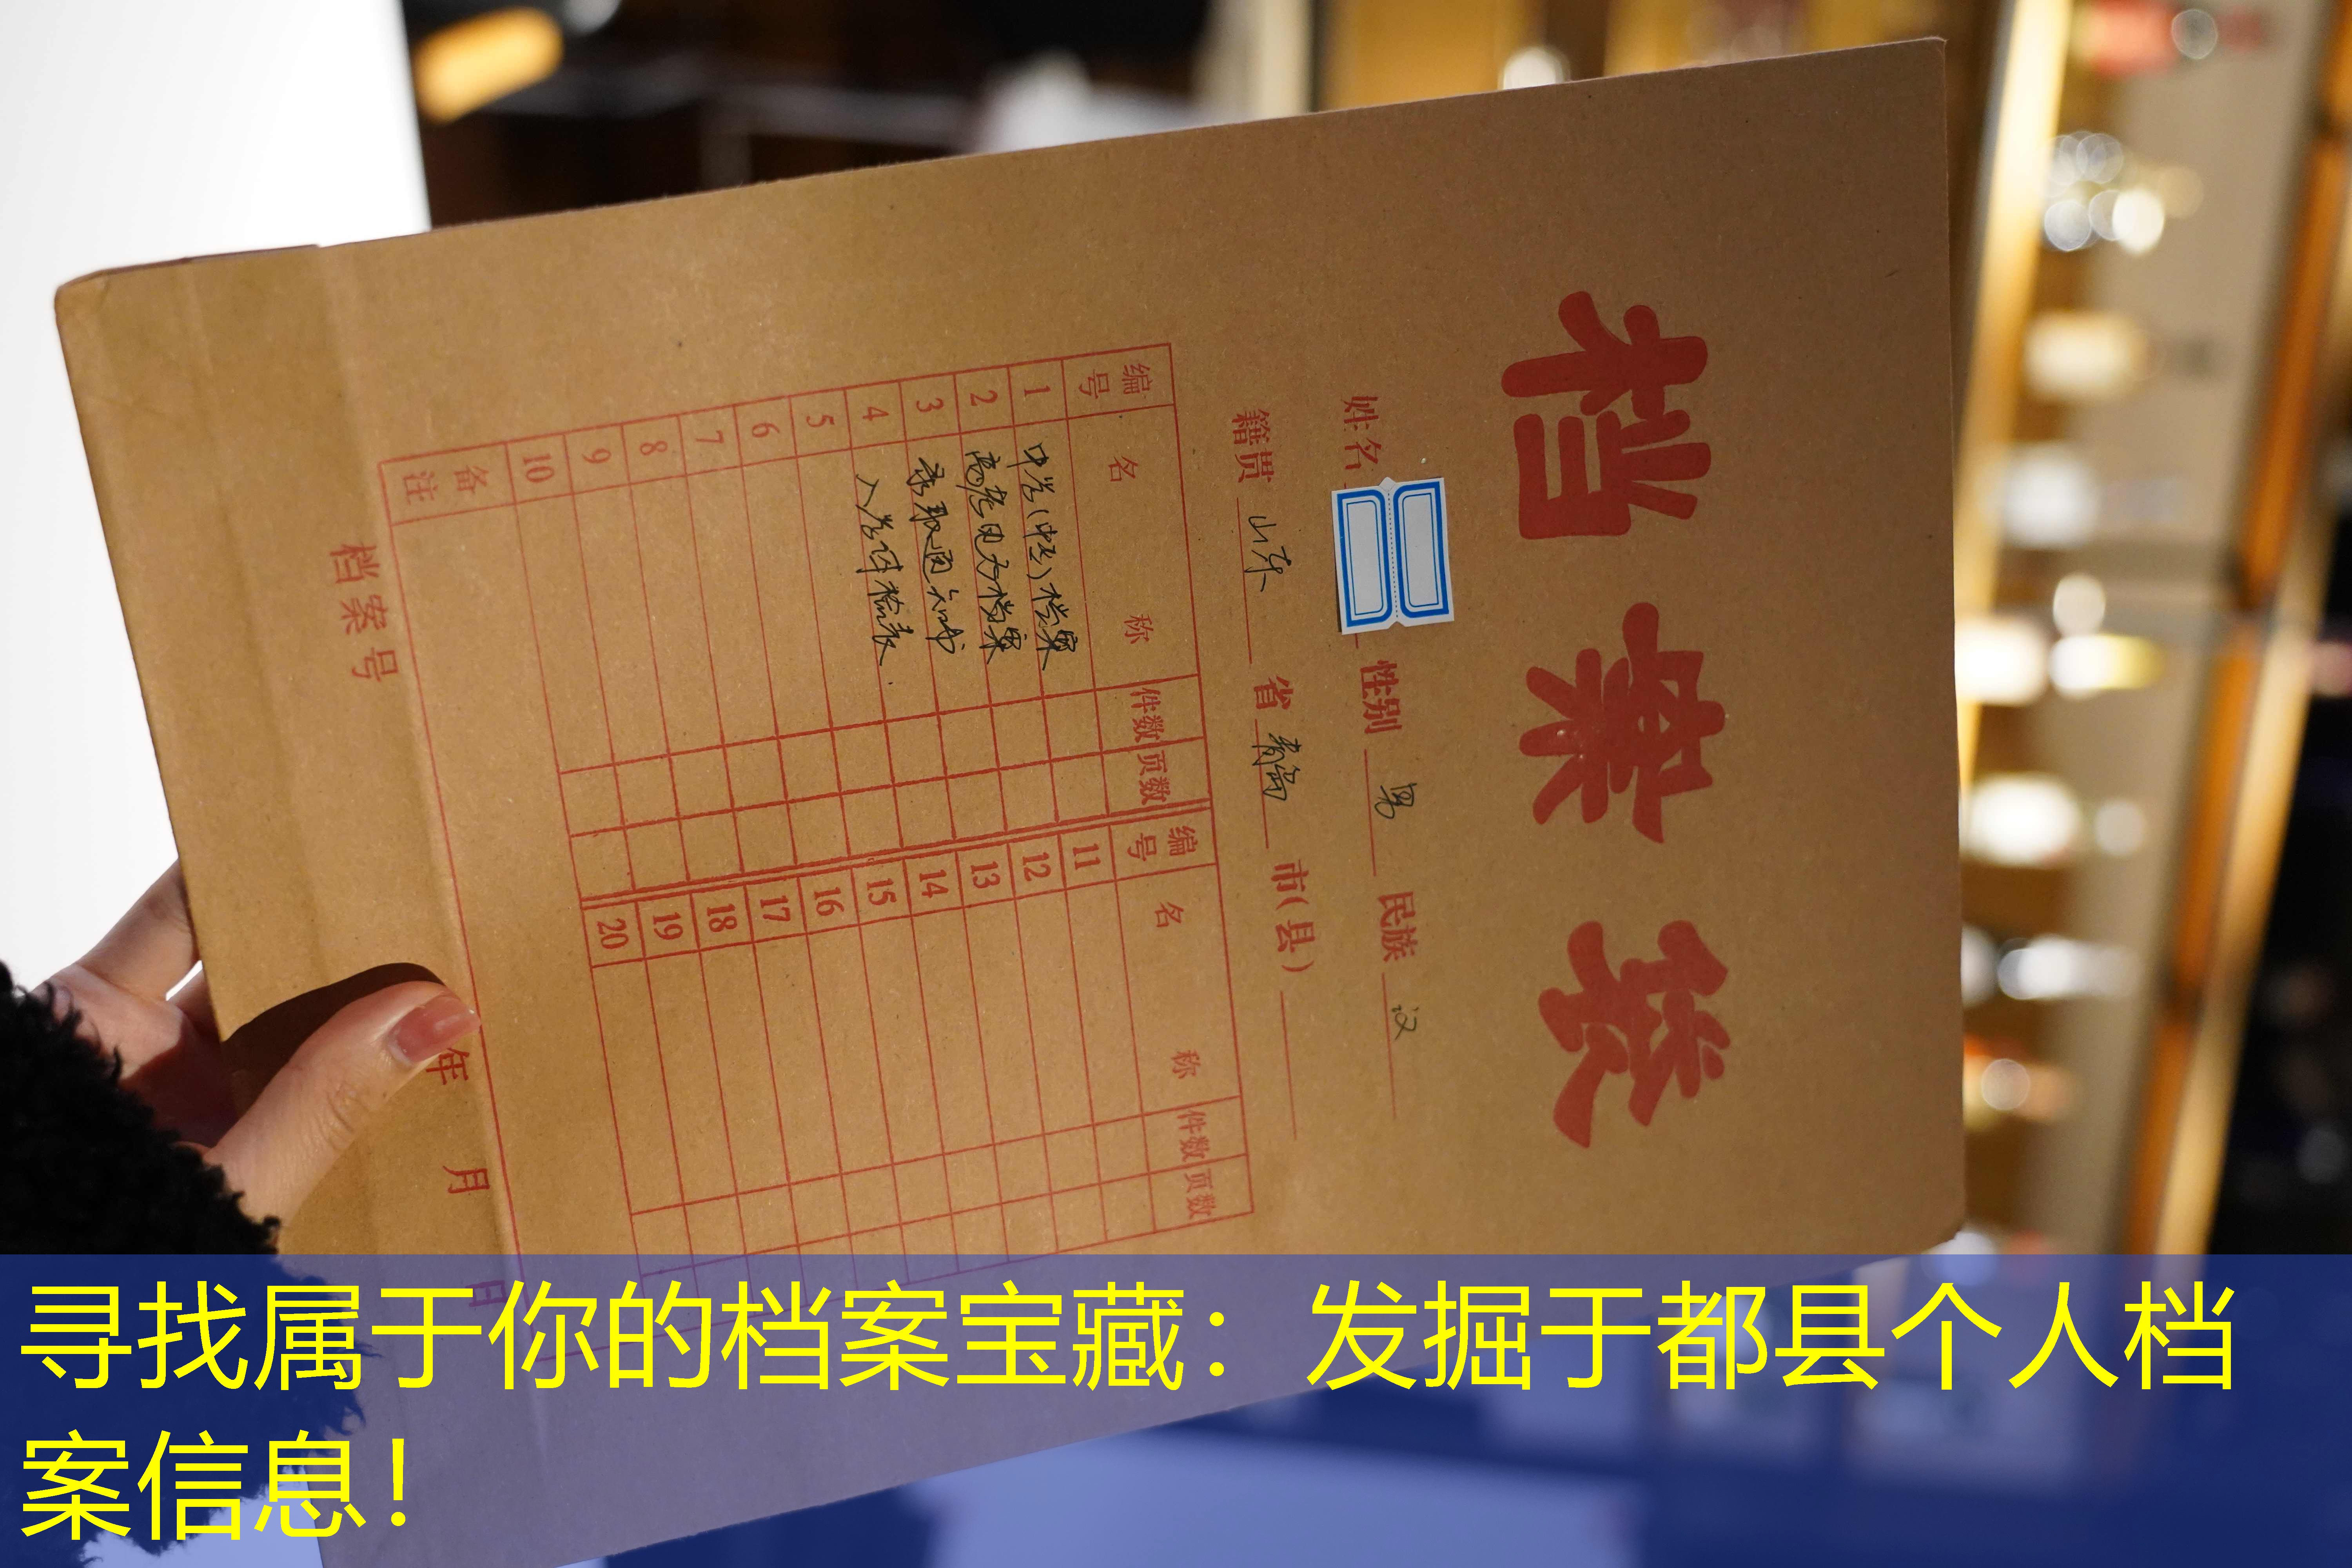 档案袋
姓名 性别 男 民族 汉
籍贯 山东 省 青岛 市(县)
编号 名称 件数 页数 编号 名称 件数 页数
1 中学(中专)档案 11
2 高考电子档案 12
3 录取通知书 13
4 入学体检表 14
5 15
6 16
7 17
8 18
9 19
10 20
备注
档案号 年 月 日
寻找属于你的档案宝藏：发掘于都县个人档
案信息！